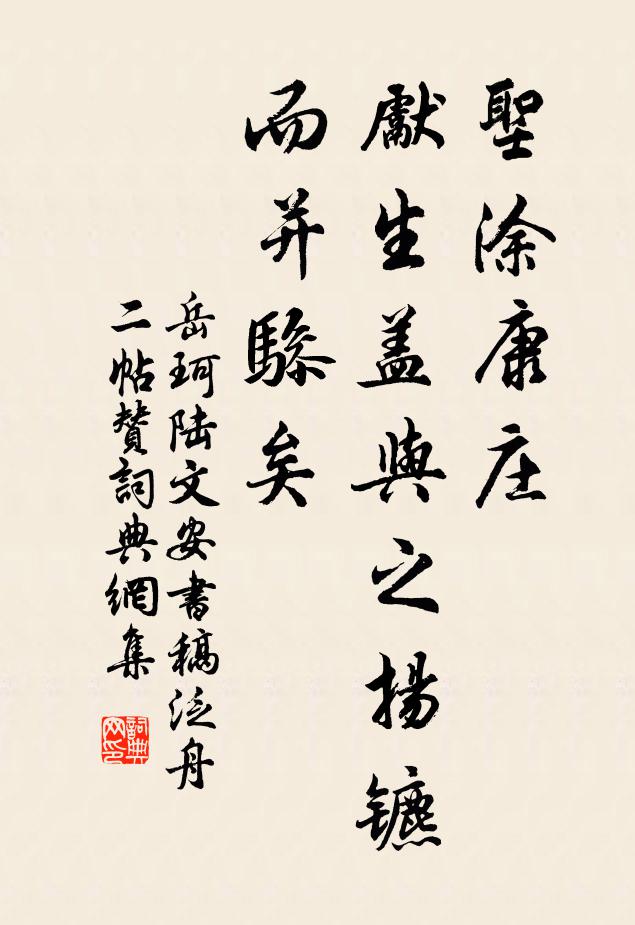 聖涂康庄
獻生盖與之揚鑣
而并驂矣
岳珂陆文安書稿泛舟
二帖贊詞典網集
詞典网印